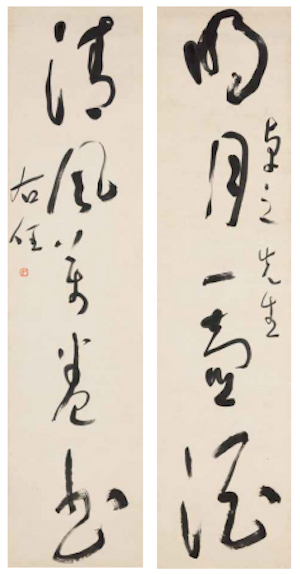 明月一壺酒
卓之先生
清風萬卷書
右任